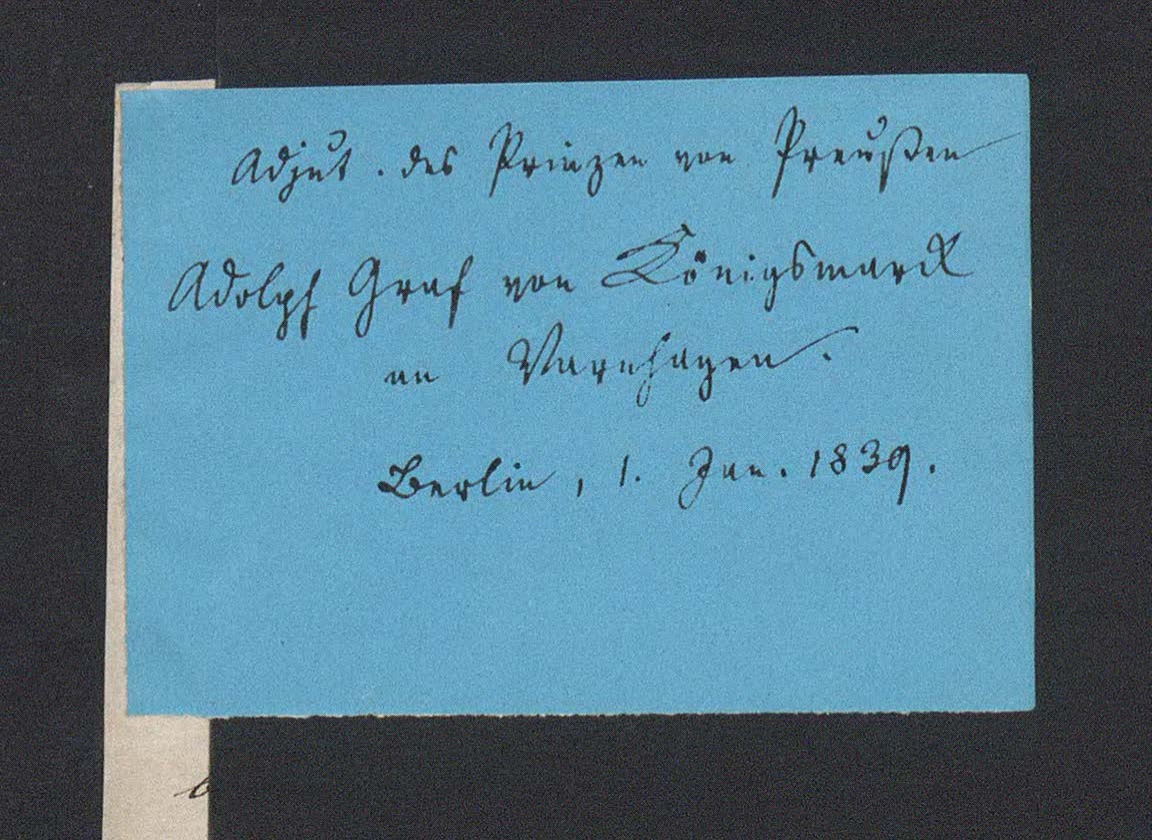 Adjut. des Prinzen von Preußen
Adolph Graf von Königsmarck
an Varnhagen.
Berlin, 1. Jan. 1839.